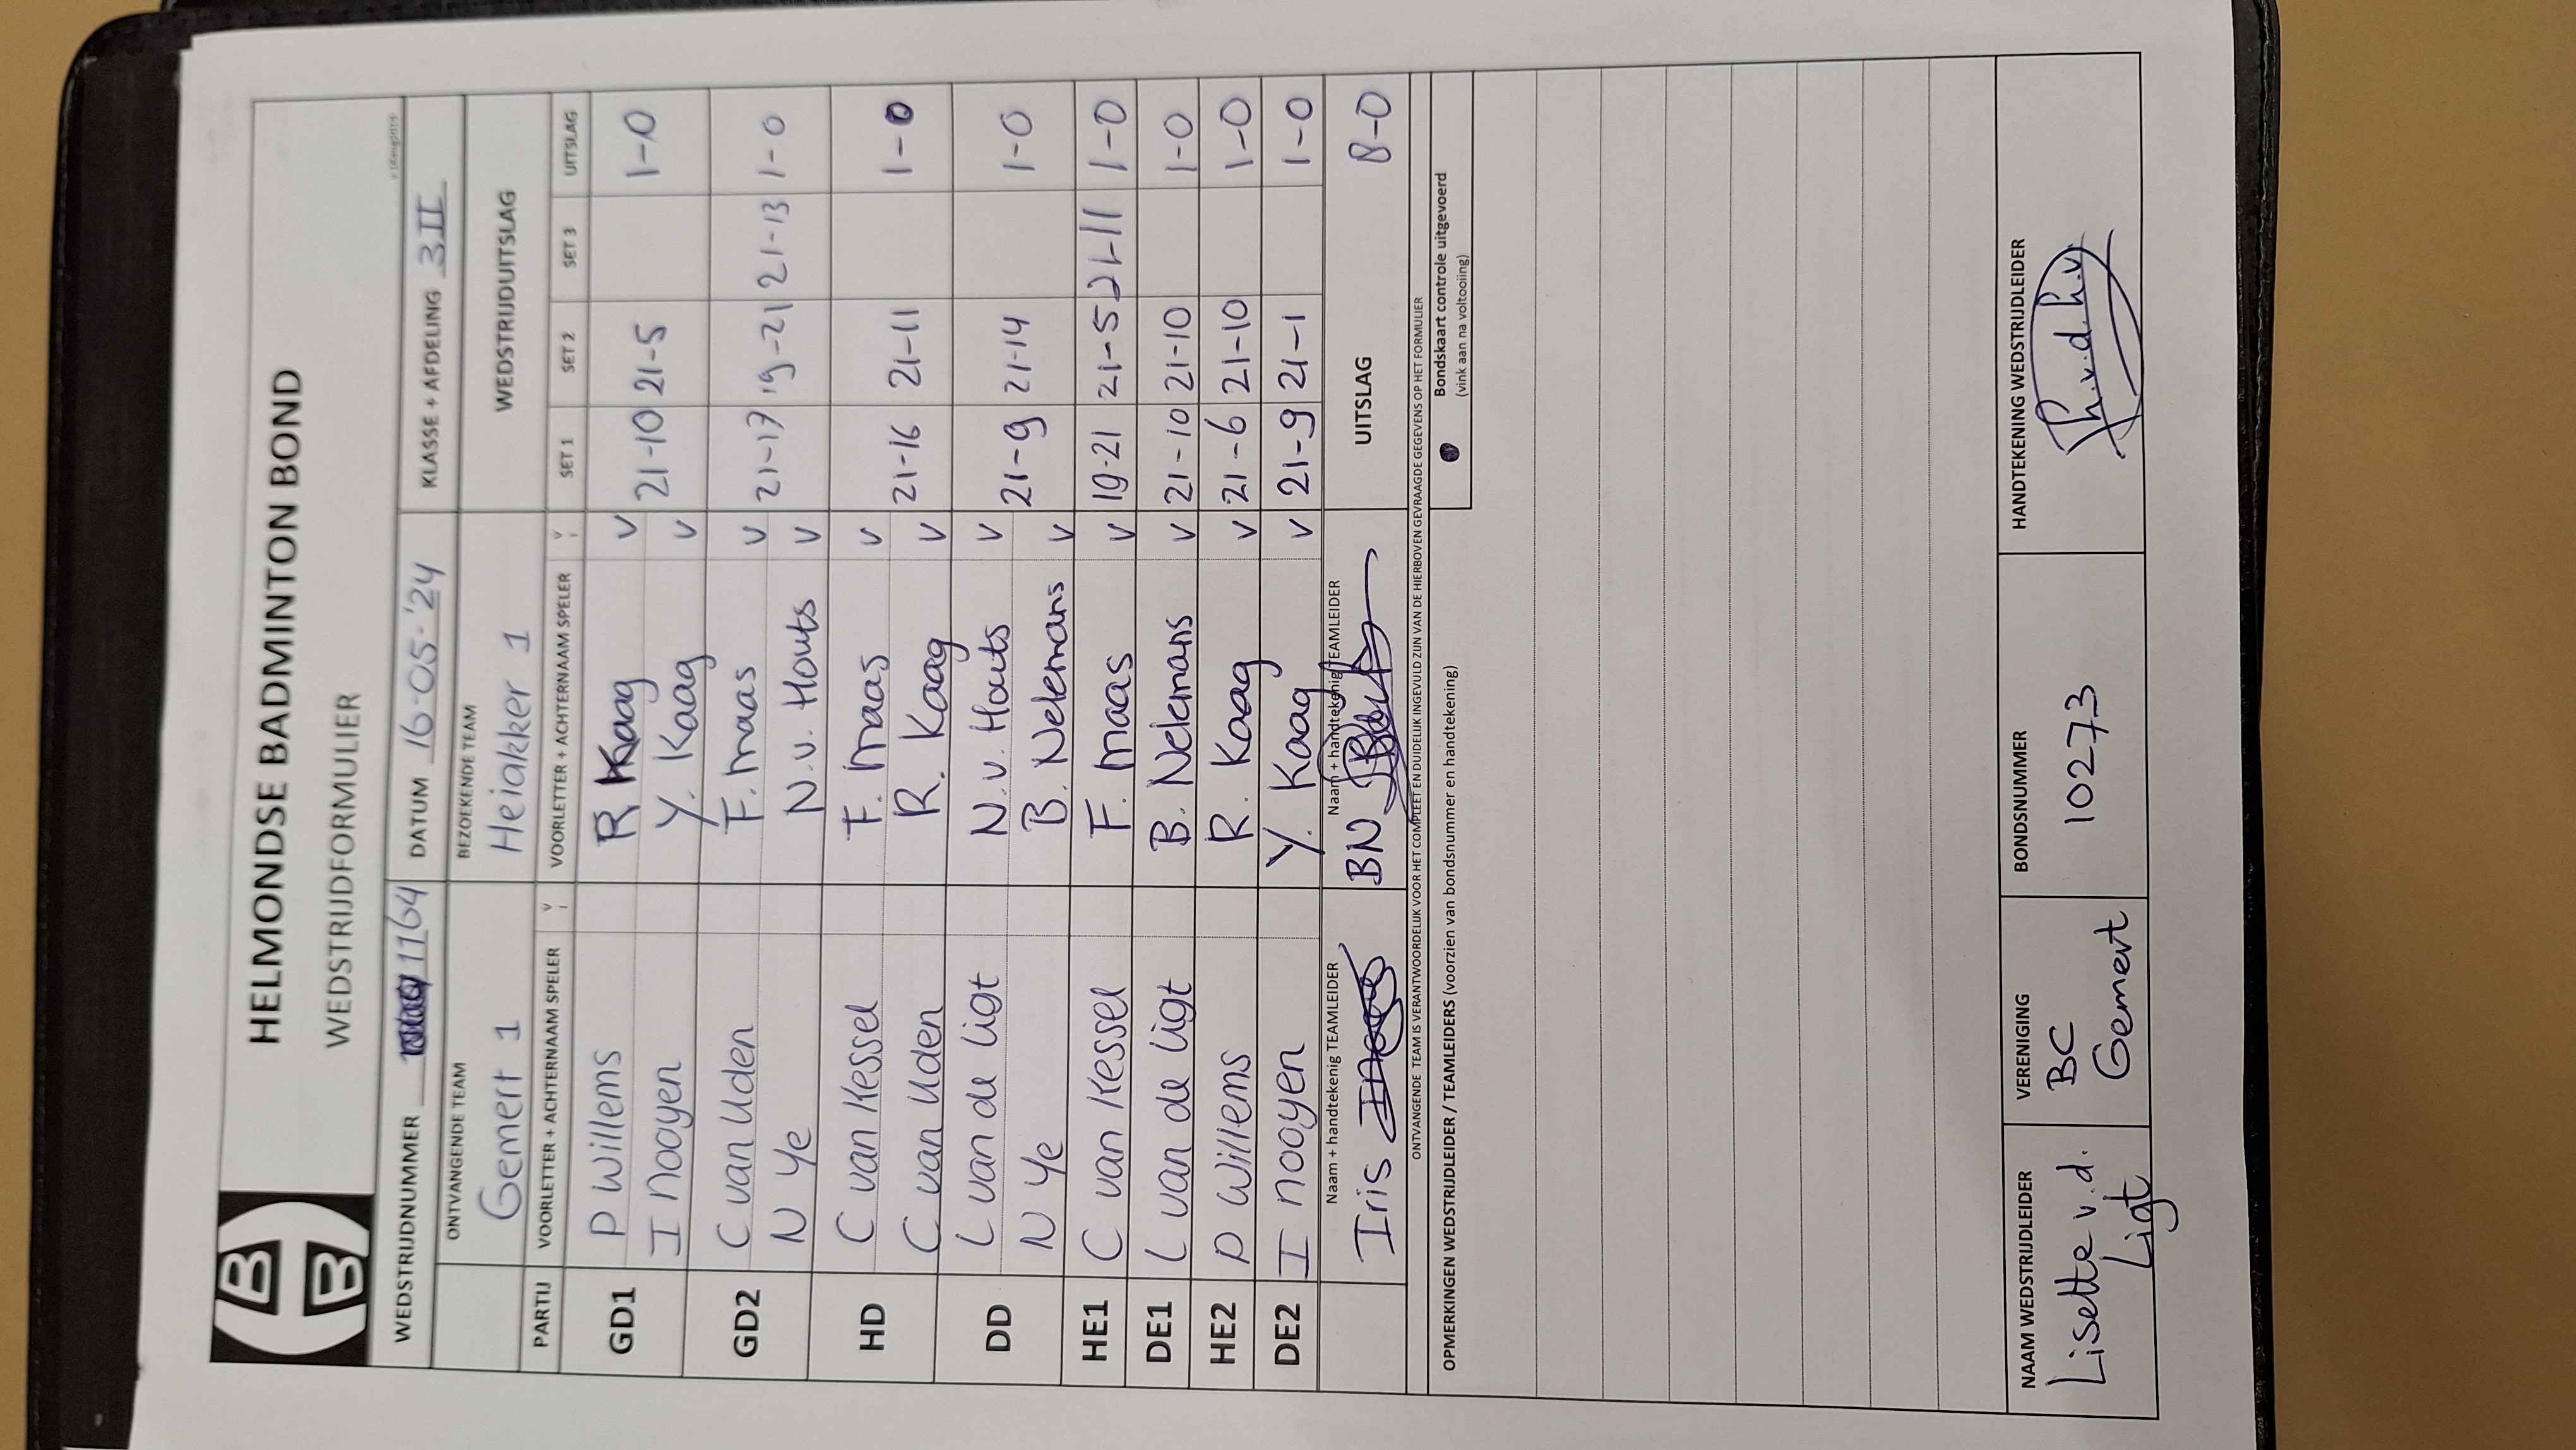 HELMONDSE BADMINTON BOND
WEDSTRIJDFORMULIER
WEDSTRIJDNUMMER 1164 DATUM 16-05-'24 KLASSE + AFDELING 3II
ONTVANGENDE TEAM BEZOEKENDE TEAM WEDSTRIJDUITSLAG
Gemert 1 Heiakker 1
PARTIJ VOORLETTER + ACHTERNAAM SPELER V VOORLETTER + ACHTERNAAM SPELER V SET 1 SET 2 SET 3 UITSLAG
GD1 P Willems R Kaag V 21-10 21-5 1-0
I nooyen Y. Kaag V
GD2 C van Uden F. maas V 21-17 19-21 21-13 1-0
N Ye N.v. Houts V
HD C van Kessel F. maas V 21-16 21-11 1-0
C van Uden R. Kaag V
DD L van de Ligt N.v. Houts V 21-9 21-14 1-0
N Ye B. Nelemans V
HE1 C van Kessel F. maas V 19-21 21-5 21-11 1-0
DE1 L van de Ligt B. Nelemans V 21-10 21-10 1-0
HE2 P Willems R. Kaag V 21-6 21-10 1-0
DE2 I nooyen Y. Kaag V 21-9 21-1 1-0
Naam + handtekenig TEAMLEIDER Naam + handtekenig TEAMLEIDER
Iris BN UITSLAG 8-0
ONTVANGENDE TEAM IS VERANTWOORDELIJK VOOR HET COMPLEET EN DUIDELIJK INGEVULD ZIJN VAN DE HIERBOVEN GEVRAAGDE GEGEVENS OP HET FORMULIER
OPMERKINGEN WEDSTRIJDLEIDER / TEAMLEIDERS (voorzien van bondsnummer en handtekening) Bondskaart controle uitgevoerd
(vink aan na voltooiing)
NAAM WEDSTRIJDLEIDER VERENIGING BONDSNUMMER HANDTEKENING WEDSTRIJDLEIDER
Lisette v.d. BC 10273
Ligt Gemert